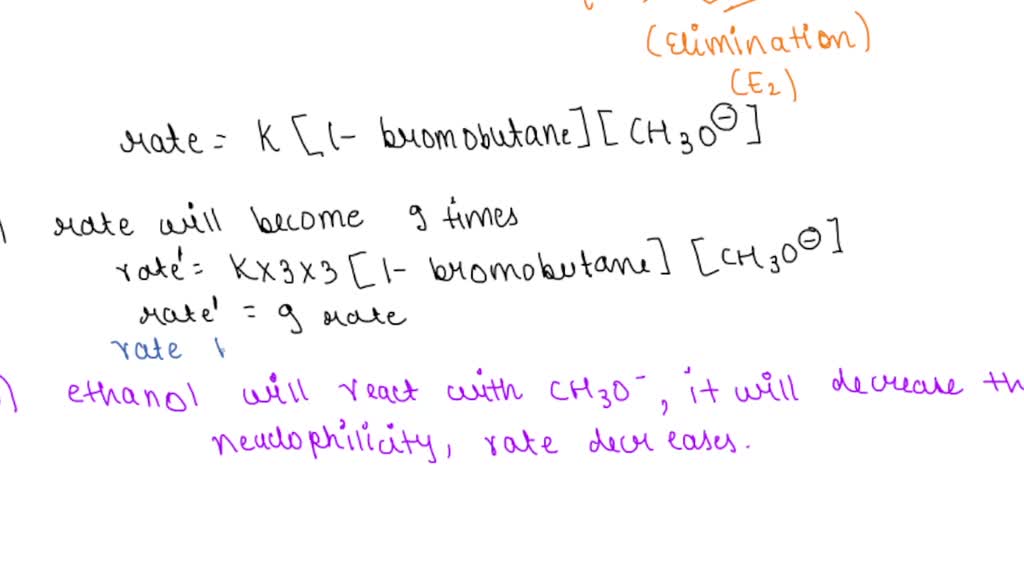 (Elimination)
(E₂)
rate = K [1- bromobutane] [CH₃O⊖]
) rate will become 9 times
rate' = K×3×3 [1- bromobutane] [CH₃O⊖]
rate' = 9 rate
rate
) ethanol will react with CH₃O⁻, it will decrease th
neuclophilicity, rate decreases.